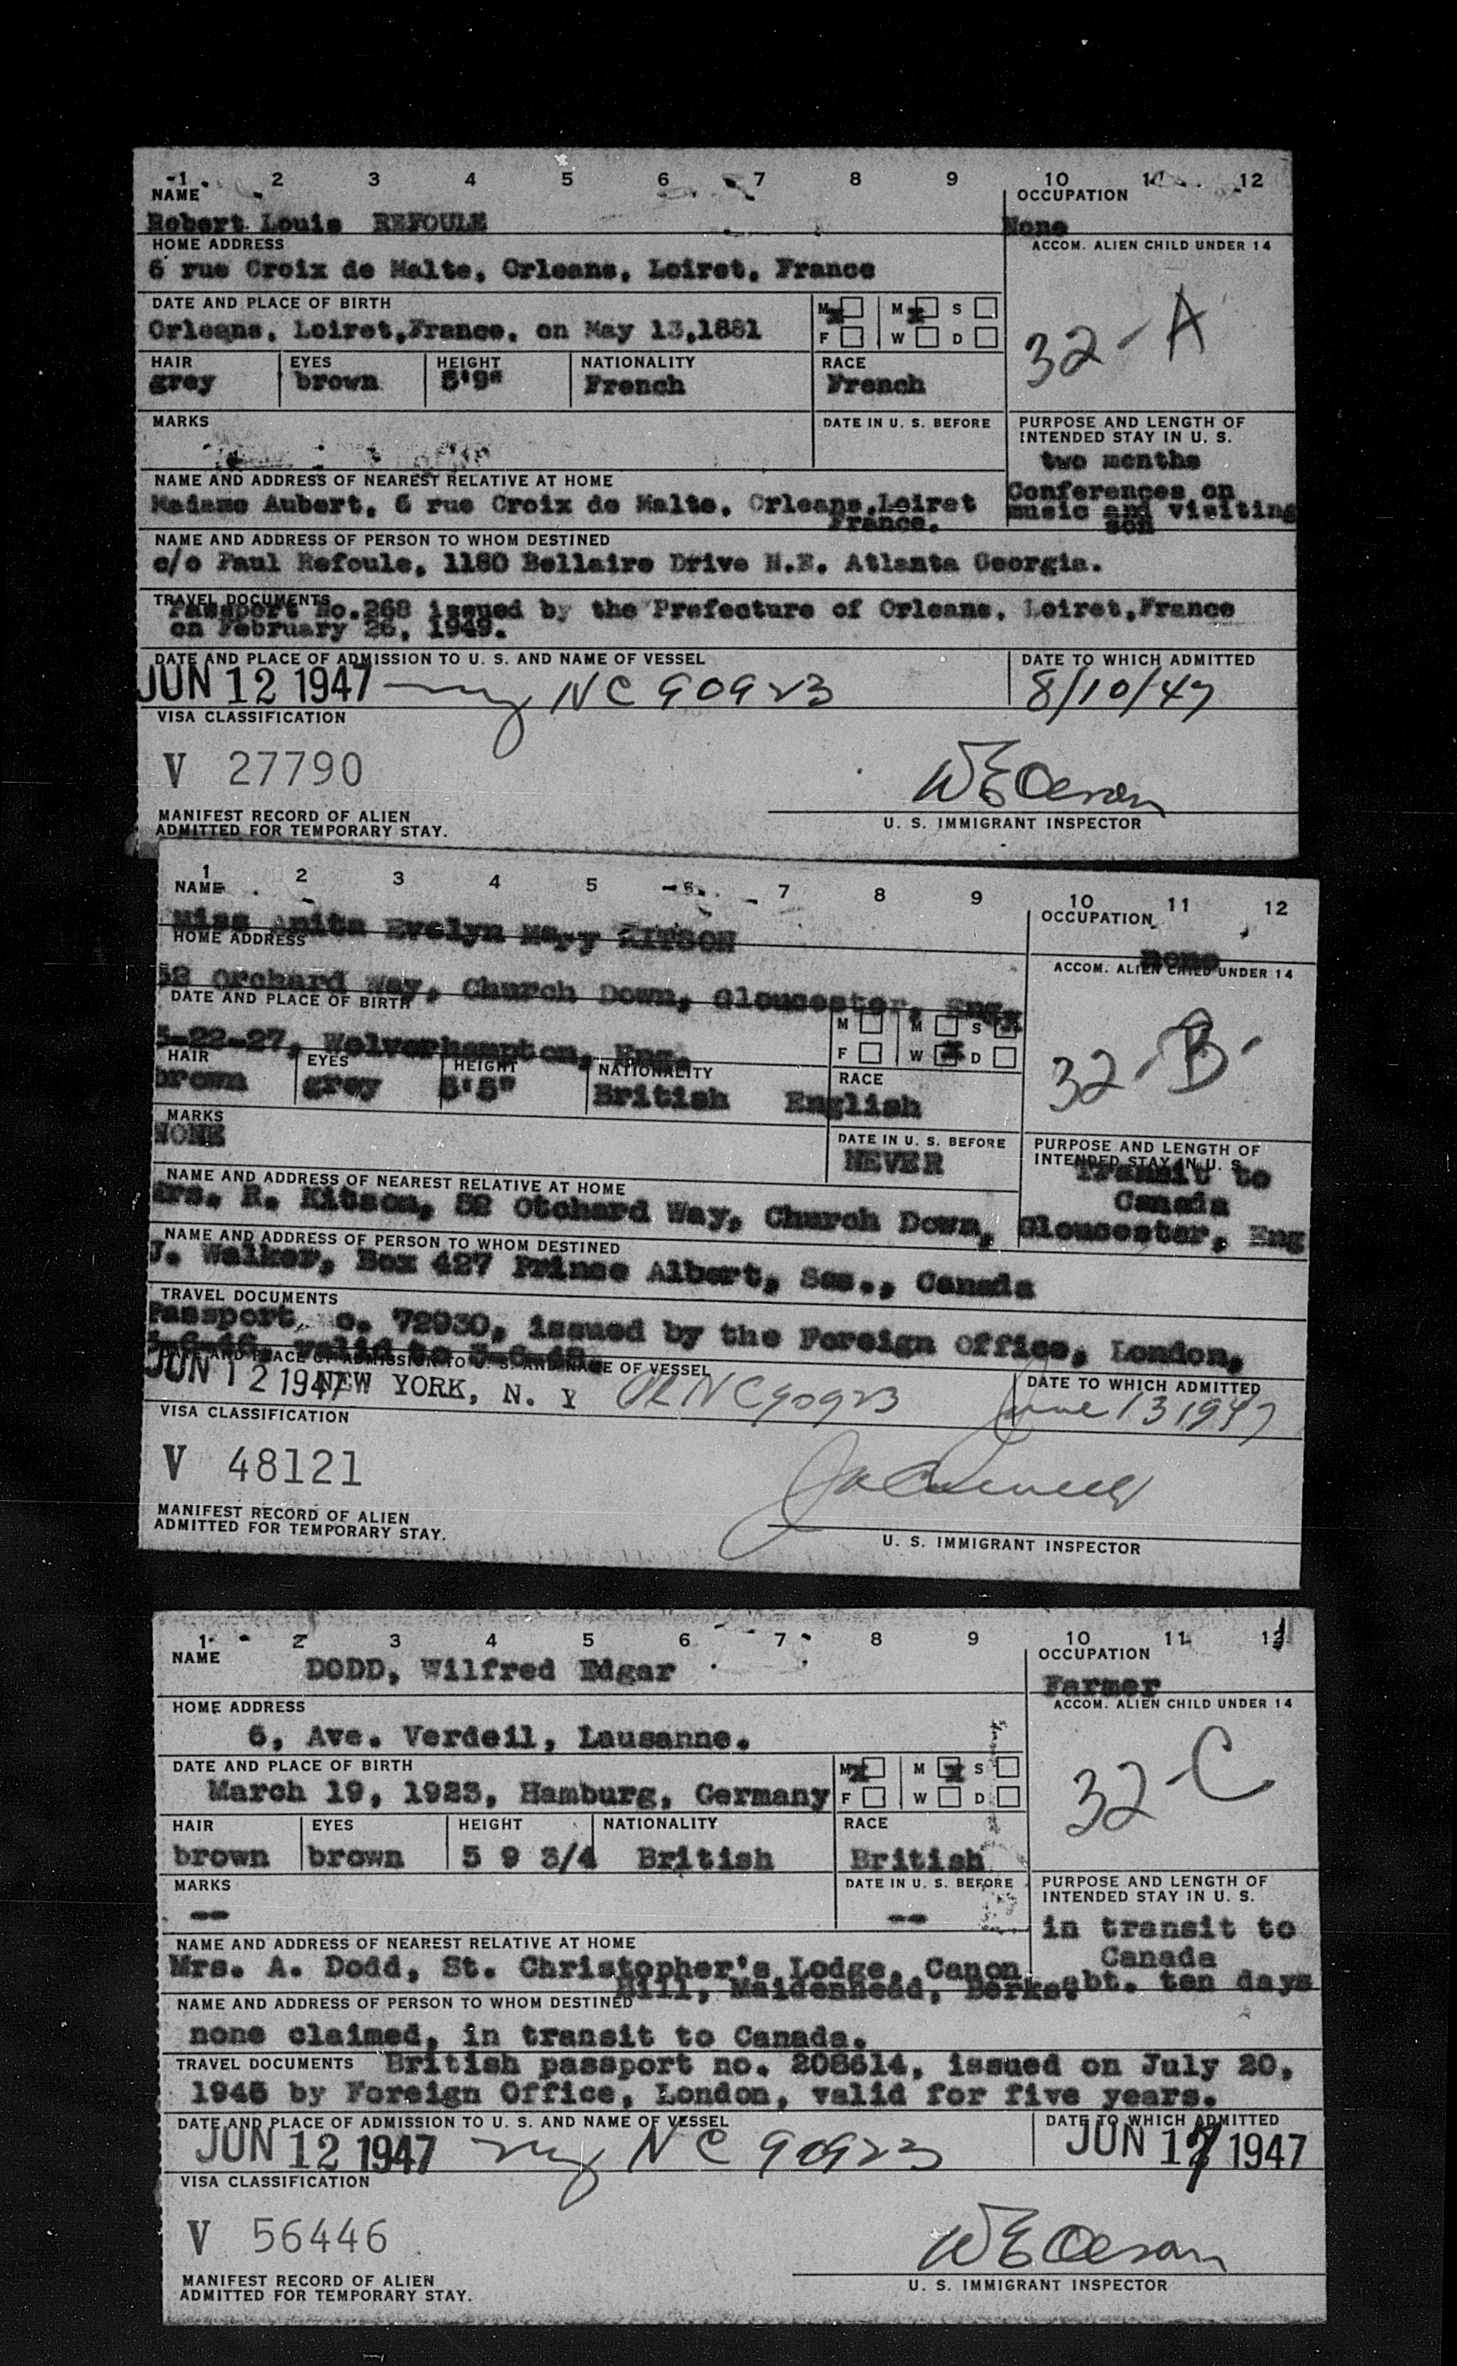 1 2 3 4 5 6 7 8 9 10 12
NAME OCCUPATION
Robert Louis REFOULE None
HOME ADDRESS ACCOM. ALIEN CHILD UNDER 14
6 rue Croix de Malte, Orleans, Loiret, France
DATE AND PLACE OF BIRTH M x M x S
Orleans, Loiret,France, on May 13,1881 F W D
32-A
HAIR EYES HEIGHT NATIONALITY RACE
grey brown 5'9" French French
MARKS DATE IN U. S. BEFORE PURPOSE AND LENGTH OF
INTENDED STAY IN U. S.
two months
NAME AND ADDRESS OF NEAREST RELATIVE AT HOME
Conferences on
Madame Aubert, 6 rue Croix de Malte, Orleans,Loiret music and visiting
France. son
NAME AND ADDRESS OF PERSON TO WHOM DESTINED
c/o Paul Refoule, 1180 Bellaire Drive N.E. Atlanta Georgia.
TRAVEL DOCUMENTS
Passport No.268 issued by the Prefecture of Orleans, Loiret,France
on February 26, 1949.
DATE AND PLACE OF ADMISSION TO U. S. AND NAME OF VESSEL DATE TO WHICH ADMITTED
JUN 12 1947 ny NC 90923 8/10/47
VISA CLASSIFICATION
V 27790
WEOleson
MANIFEST RECORD OF ALIEN
ADMITTED FOR TEMPORARY STAY.
U. S. IMMIGRANT INSPECTOR
1 2 3 4 5 6 7 8 9 10 11 12
NAME OCCUPATION
Miss Anita Evelyn Mary KITSON none
HOME ADDRESS ACCOM. ALIEN CHILD UNDER 14
52 Orchard Way, Church Down, Gloucester, Eng.
DATE AND PLACE OF BIRTH M M S x
5-22-27, Wolverhampton, Eng. F W x D
32-B-
HAIR EYES HEIGHT NATIONALITY RACE
brown grey 5'5" British English
MARKS DATE IN U. S. BEFORE PURPOSE AND LENGTH OF
INTENDED STAY IN U. S.
NONE NEVER Transit to
Canada
NAME AND ADDRESS OF NEAREST RELATIVE AT HOME
Mrs. R. Kitson, 52 Otchard Way, Church Down, Gloucester, Eng
NAME AND ADDRESS OF PERSON TO WHOM DESTINED
J. Walker, Box 427 Prince Albert, Sas., Canada
TRAVEL DOCUMENTS
Passport o. 72930, issued by the Foreign Office, London,
valid to
DATE AND PLACE OF ADMISSION TO U. S. AND NAME OF VESSEL DATE TO WHICH ADMITTED
JUN 12 1947 NEW YORK, N. Y NC90923 June 13 1947
VISA CLASSIFICATION
V 48121
MANIFEST RECORD OF ALIEN
ADMITTED FOR TEMPORARY STAY.
U. S. IMMIGRANT INSPECTOR
1 2 3 4 5 6 7 8 9 10 11
NAME OCCUPATION
DODD, Wilfred Edgar Farmer
HOME ADDRESS ACCOM. ALIEN CHILD UNDER 14
6, Ave. Verdeil, Lausanne.
DATE AND PLACE OF BIRTH M x M x S
March 19, 1923, Hamburg, Germany F W D
32-C
HAIR EYES HEIGHT NATIONALITY RACE
brown brown 5 9 3/4 British British
MARKS DATE IN U. S. BEFORE PURPOSE AND LENGTH OF
INTENDED STAY IN U. S.
-- -- in transit to
NAME AND ADDRESS OF NEAREST RELATIVE AT HOME Canada
Mrs. A. Dodd, St. Christopher's Lodge, Canon
Hill, Maidenhead, Berks. abt. ten days
NAME AND ADDRESS OF PERSON TO WHOM DESTINED
none claimed, in transit to Canada.
TRAVEL DOCUMENTS British passport no. 208614, issued on July 20,
1945 by Foreign Office, London, valid for five years.
DATE AND PLACE OF ADMISSION TO U. S. AND NAME OF VESSEL DATE TO WHICH ADMITTED
JUN 12 1947 ny NC 90923 JUN 17 1947
VISA CLASSIFICATION
V 56446
WEOleson
MANIFEST RECORD OF ALIEN
ADMITTED FOR TEMPORARY STAY.
U. S. IMMIGRANT INSPECTOR